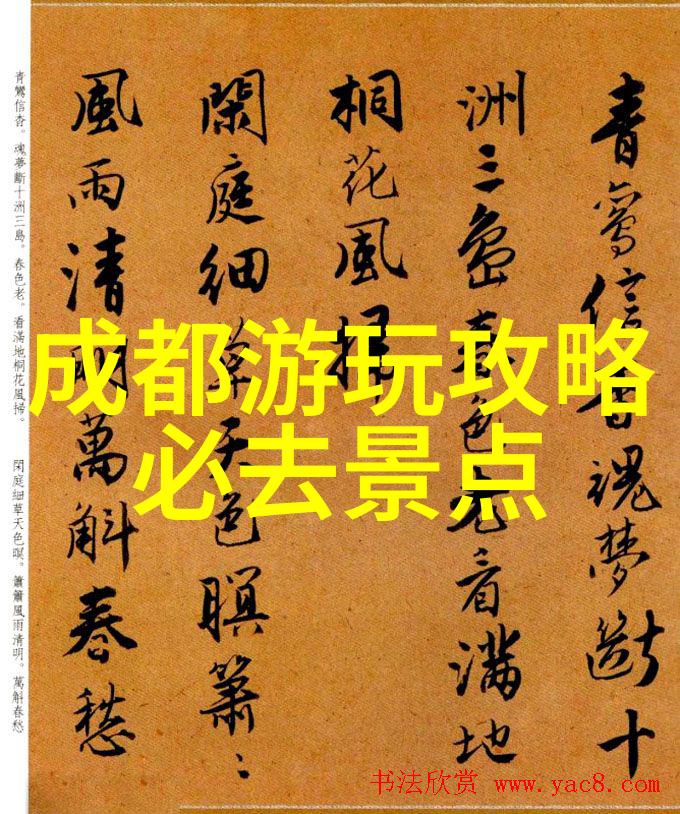 成都游玩攻略
必去景点
青鸞信杳魂夢斷十
洲三島春色老看滿地
桐花風掃
閑庭細草天色暝簫〻
風雨清明萬斛春愁
青鸞信杳。魂夢斷十洲三島。春色老。看滿地桐花風掃。　閑庭細草天色暝。簫簫風雨清明。萬斛春愁
书法欣赏 www.yac8.com